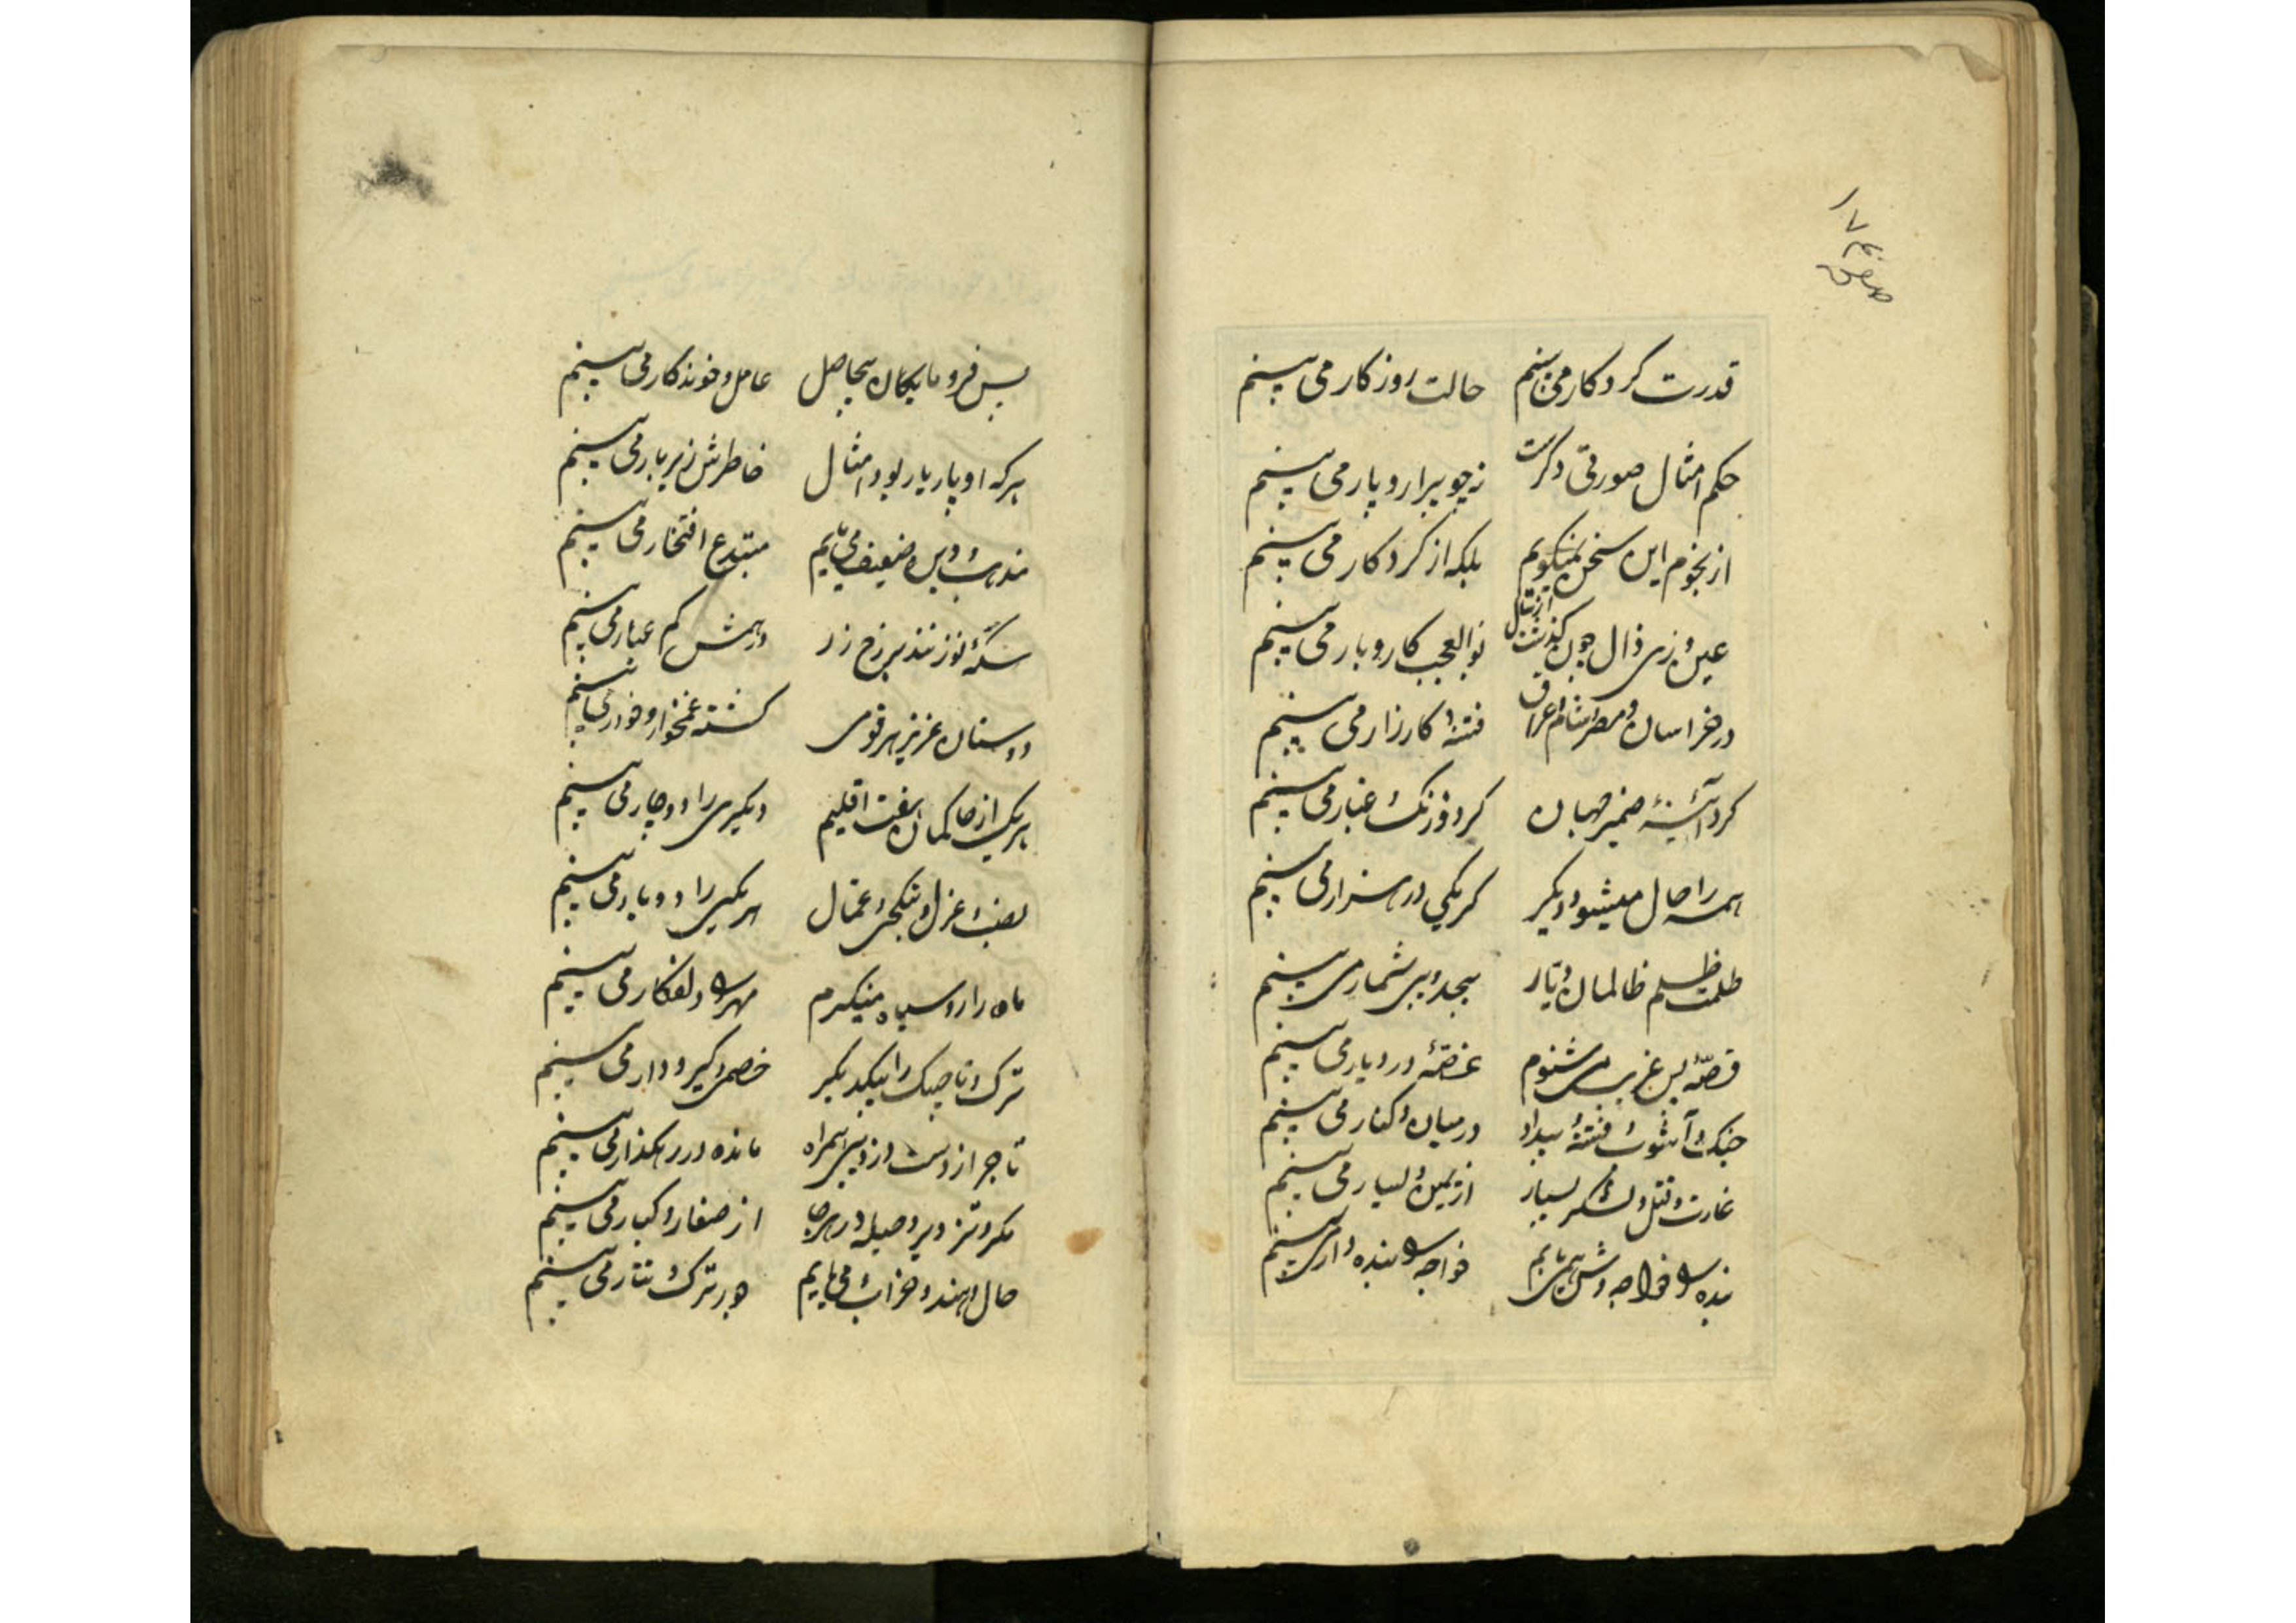 صفحه ۱۷۴
قدرت کردکار می بینم حالت روزکار می بینم
حکم امثال صورتی دکرست نه چو پیرار و پار می بینم
از نجوم این سخن نمیکویم بلکه از کردکار می بینم
عین و ری ذال چون کذشت از سال بوالعجب کار و بار می بینم
در خراسان و مصر و شام و عراق فتنه کارزار می بینم
کرد آئینه ضمیر جهان کرد و زنک و غبار می بینم
همه را حال میشود دیکر کر یکی در هزار می بینم
ظلمت ظلم ظالمان دیار بیحد و بی شمار می بینم
قصّهٔ بس غریب می شنوم غصّهٔ در دیار می بینم
جنک و آشوب و فتنه و بیداد در میان و کنار می بینم
غارت و قتل و لشکر بسیار از یمین و یسار می بینم
بنده را خواجه وش همی یابم خواجه را بنده وار می بینم
بس فرومایکان بیحاصل عامل و خوندکار می بینم
هرکه او پار یار بود امثال خاطرش زیر بار می بینم
مذهب و دین ضعیف می یابم مبتدع افتخار می بینم
سکّهٔ نو زنند بر رخ زر درهمش کم عیار می بینم
دوستان عزیز هر قومی کشته غمخوار و خوار می بینم
هریک از حاکمان هفت اقلیم دیکری را دوچار می بینم
نصب و عزل و تنکچی و عمال هر یکی را دو بار می بینم
ماه را رو سیاه مینکرم مهر را دلفکار می بینم
ترک و تاجیک را بیکدیکر خصمی و کیر و دار می بینم
تاجر از دست دزد بی همراه مانده در رهکذار می بینم
مکر و تزویر و حیله در هر جا از صغار و کبار می بینم
حال هندو خراب می یابم جور ترک و تتار می بینم